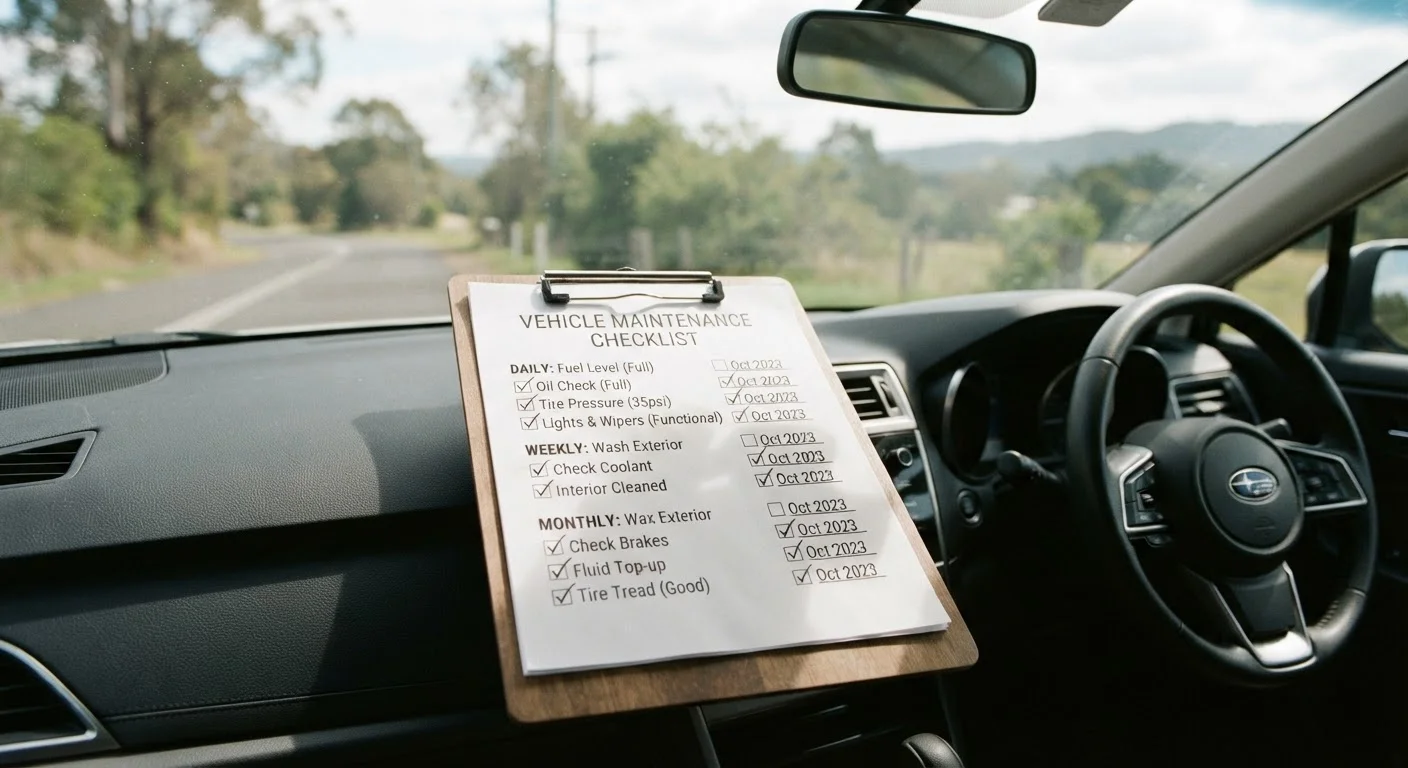 VEHICLE MAINTENANCE
CHECKLIST
DAILY: Fuel Level (Full) ☐ Oct 2023
☑ Oil Check (Full) ☑ Oct 2023
☑ Tite Pressure (35psi) ☑ Oct 2023
☑ Lights & Wipers (Functional) ☑ Oct 2023
WEEKLY: Wash Exterior ☐ Oct 2023
☑ Check Coolant ☑ Oct 2023
☑ Interior Cleaned ☑ Oct 2023
MONTHLY: Wax Exterior ☐ Oct 2023
☑ Check Brakes ☑ Oct 2023
☑ Fluid Top-up ☑ Oct 2023
☑ Tire Tread (Good) ☑ Oct 2023